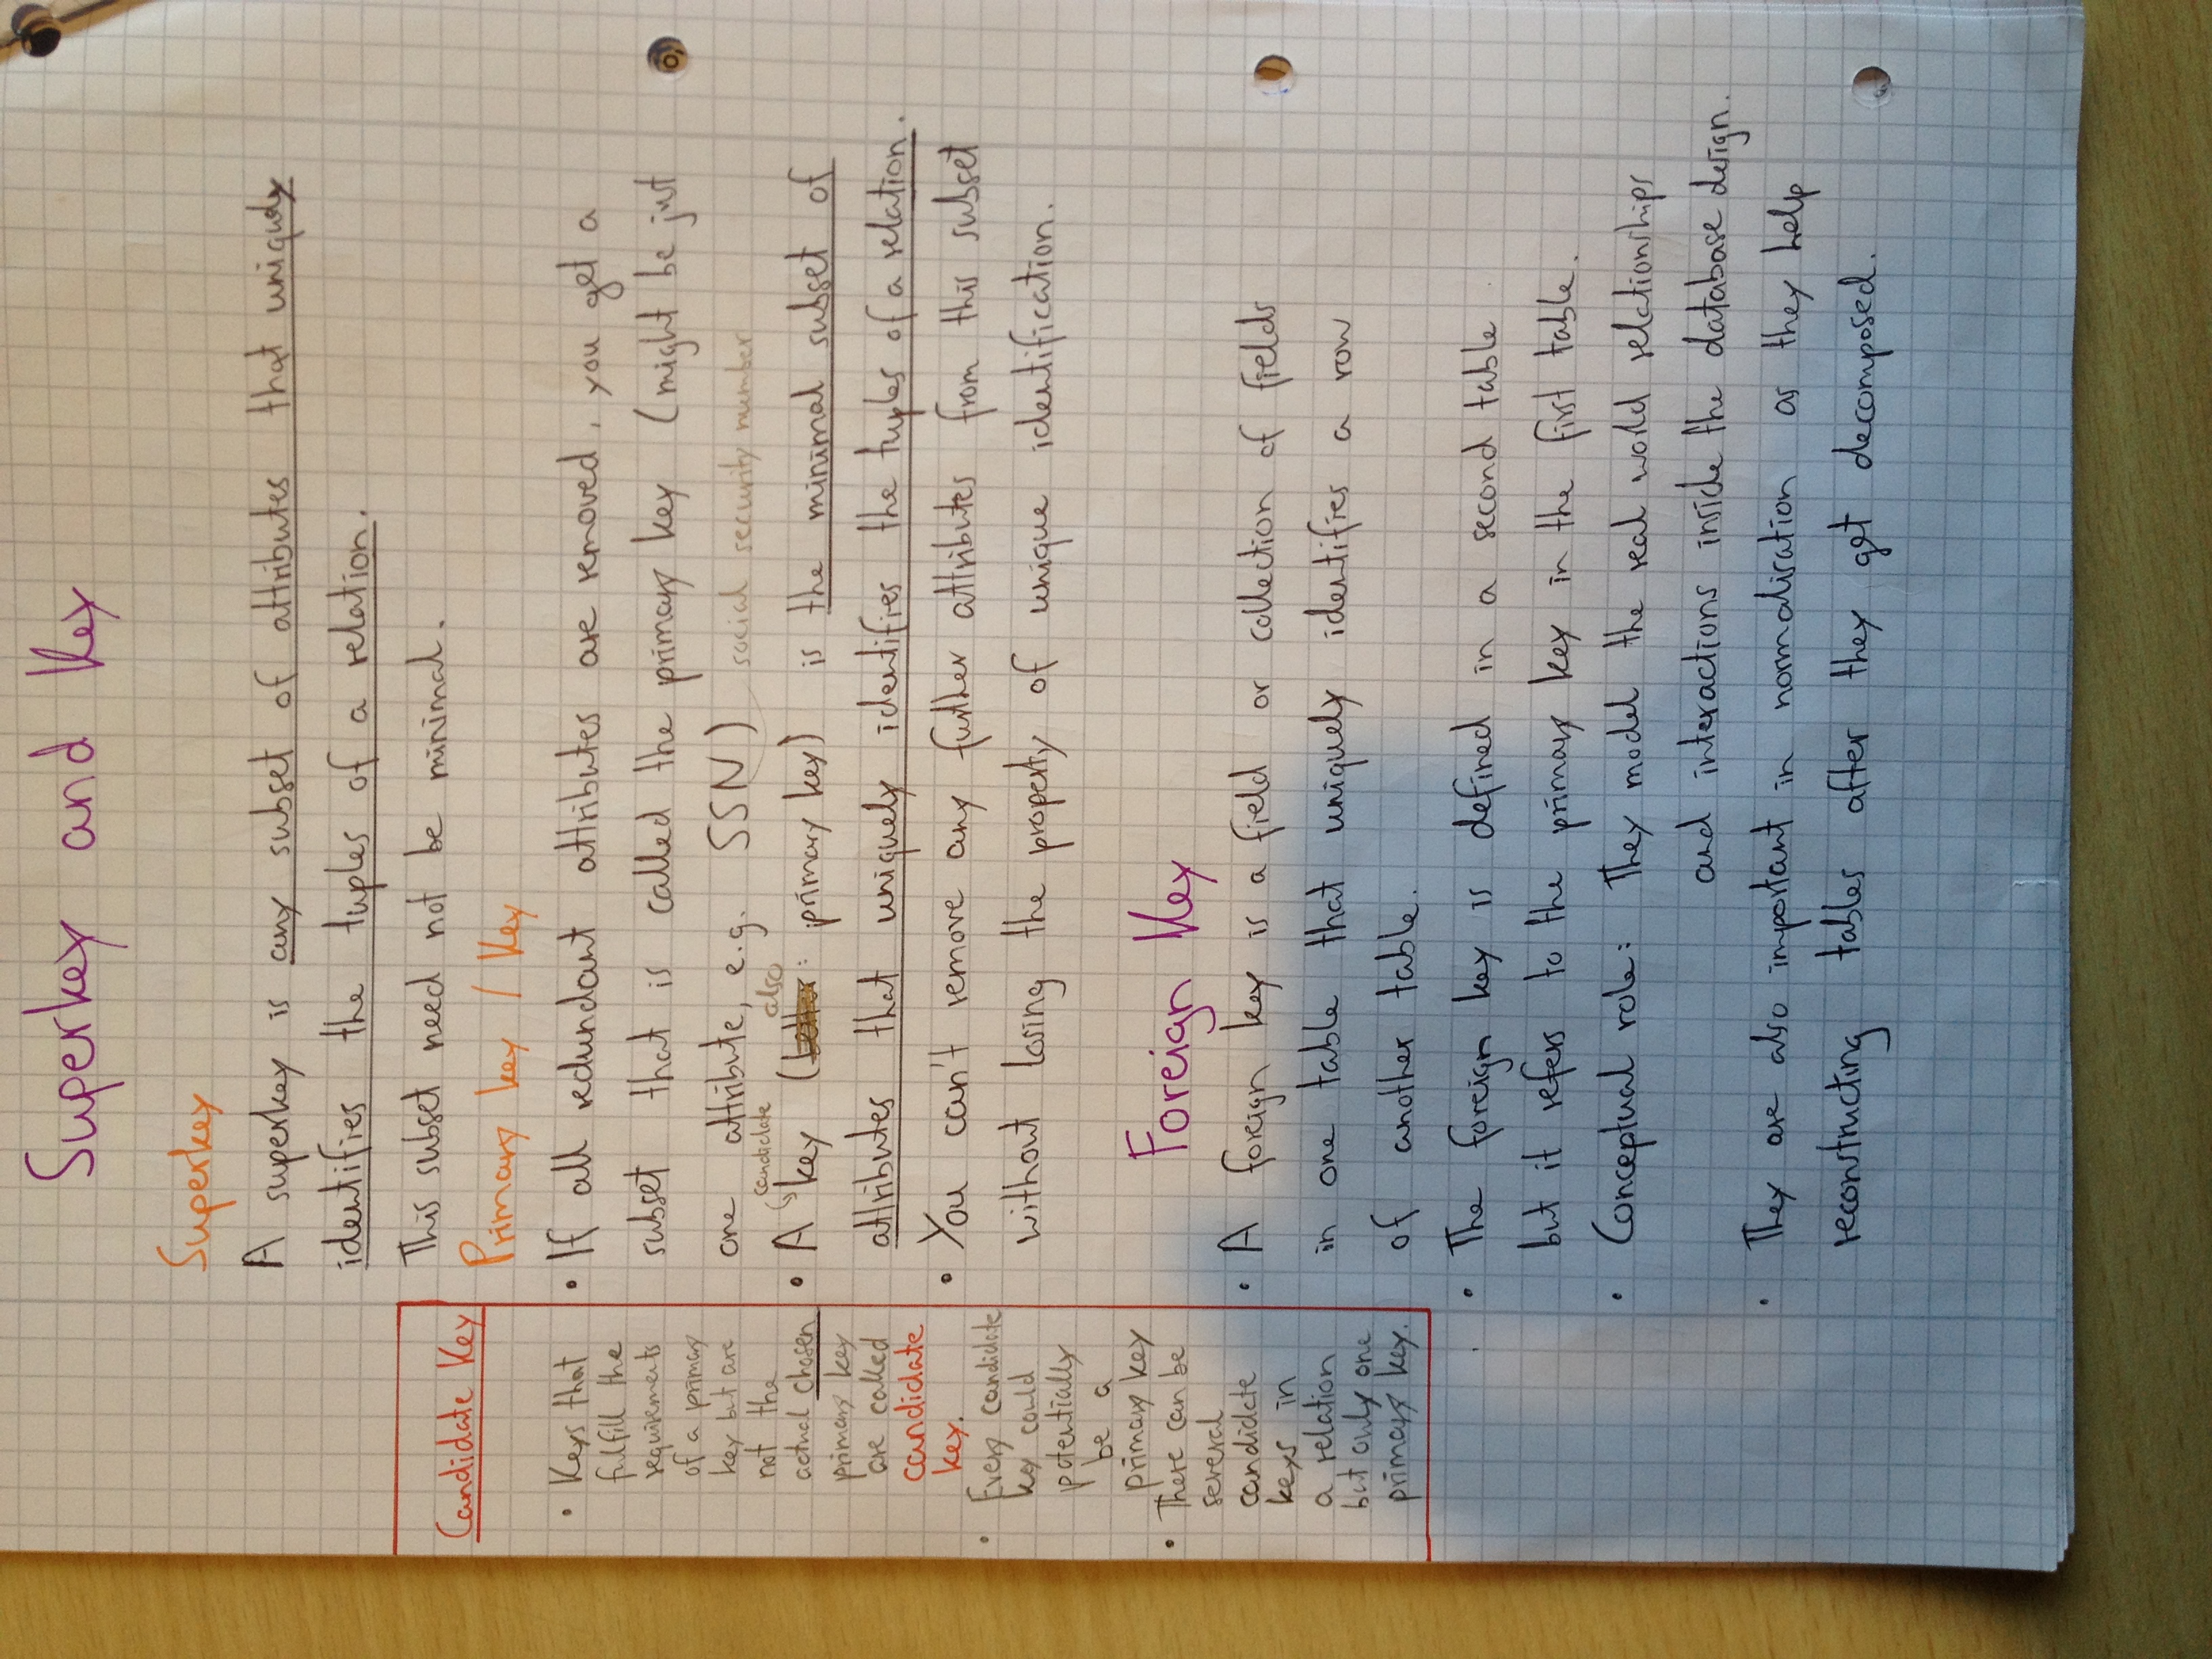 Superkey and Key
Superkey
A superkey is any subset of attributes that uniquely
identifies the tuples of a relation.
This subset need not be minimal.
Primary key / Key
• If all redundant attributes are removed, you get a
subset that is called the primary key (might be just
one attribute, e.g. SSN) social security number
candidate also
• A key (better: primary key) is the minimal subset of
attributes that uniquely identifies the tuples of a relation.
• You can't remove any further attributes from this subset
without losing the property of unique identification.
Candidate Key
• Keys that
fulfill the
requirements
of a primary
key but are
not the
actual chosen
primary key
are called
candidate
key.
• Every candidate
key could
potentially
be a
primary key
• There can be
several
candidate
keys in
a relation
but only one
primary key.
Foreign Key
• A foreign key is a field or collection of fields
in one table that uniquely identifies a row
of another table.
• The foreign key is defined in a second table
but it refers to the primary key in the first table.
• Conceptual role: They model the real world relationships
and interactions inside the database design.
• They are also important in normalisation as they help
reconstructing tables after they get decomposed.